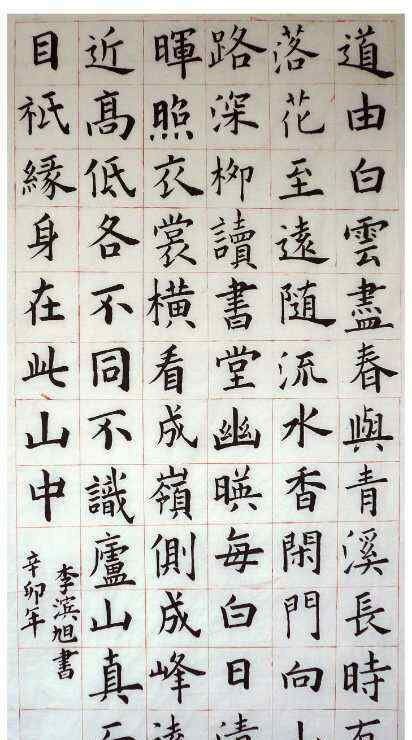 道由白雲盡春與青溪長時有
落花至遠隨流水香閑門向
路深柳讀書堂幽暎每白日清
暉照衣裳橫看成嶺側成峰遠
近髙低各不同不識廬山真
目祇緣身在此山中
李滨旭書
辛卯年